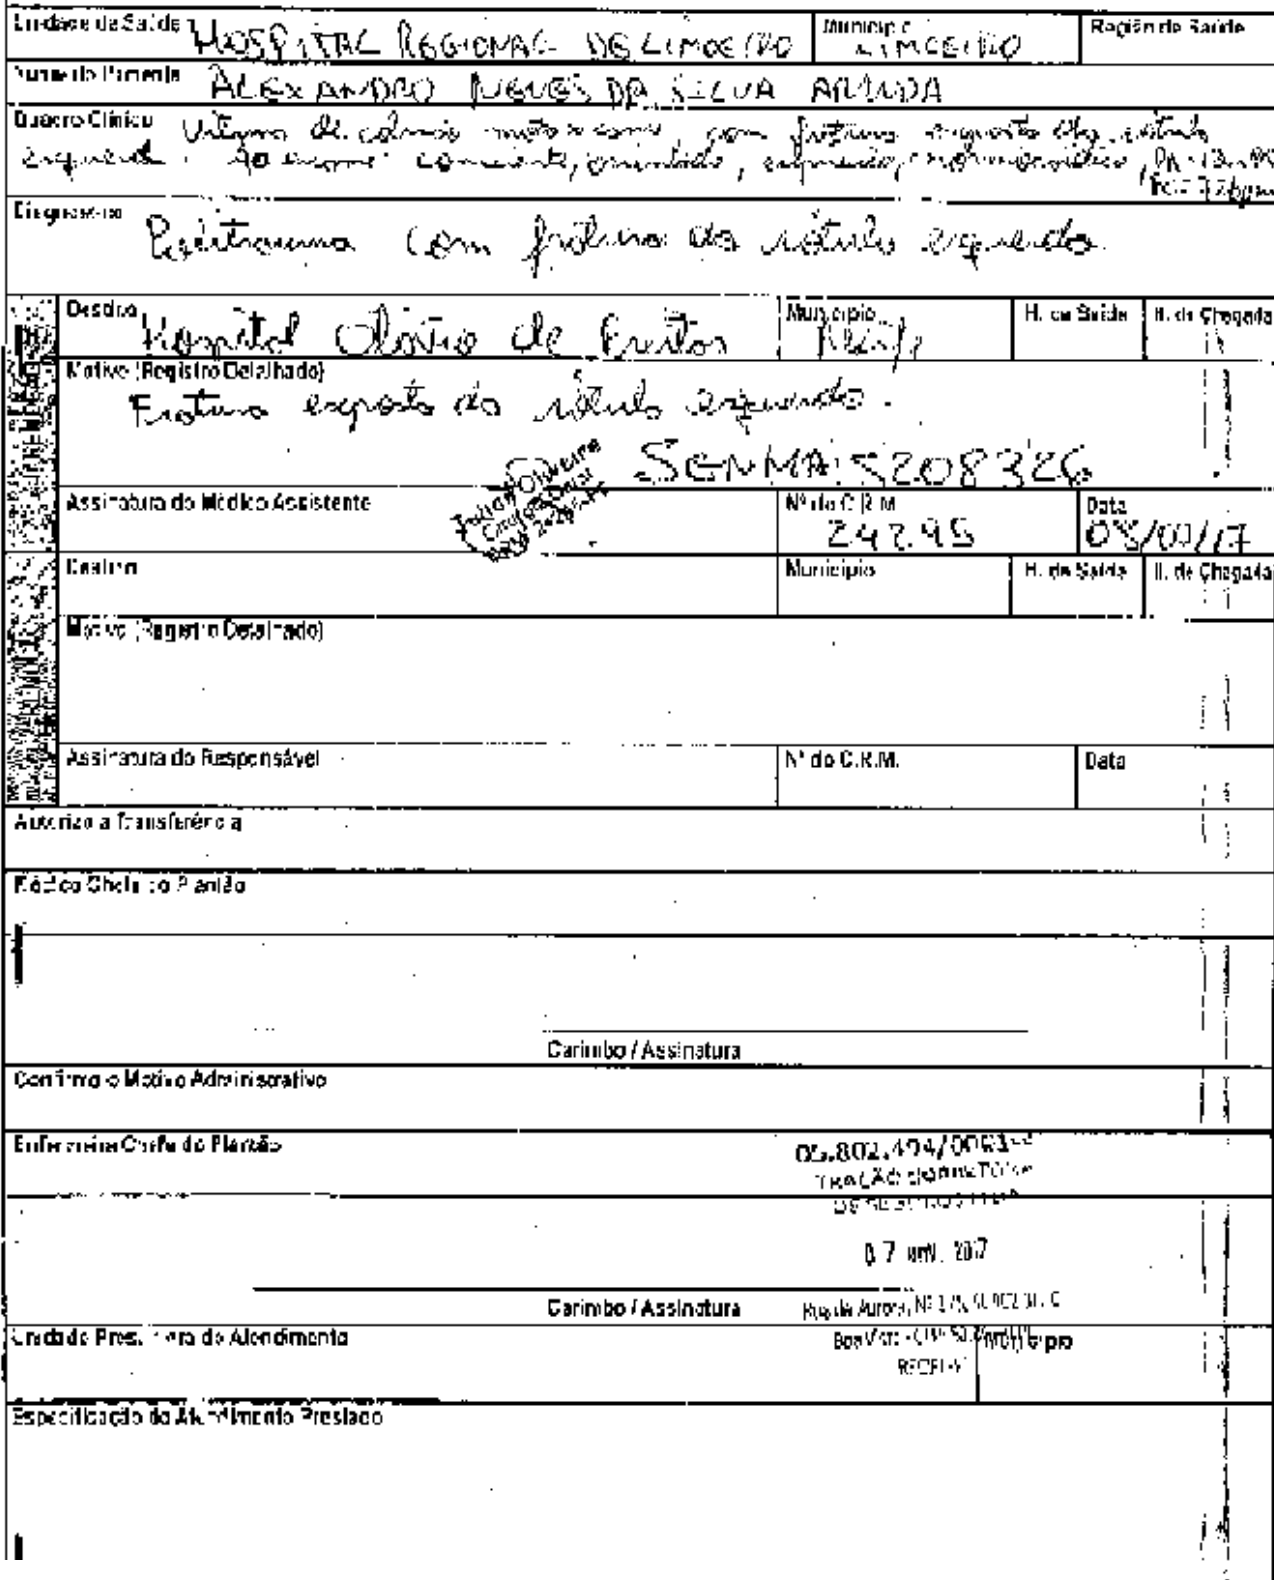 Unidade de Saúde HOSPITAL REGIONAL DE LIMOEIRO Município LIMOEIRO Região de Saúde
Nome do Paciente ALEXANDRO NEVES DA SILVA ARRUDA
Quadro Clínico Vítima de colisão moto x carro, com fratura exposta da rótula
esquerda. Ao exame: consciente, orientado, eupneico, normocárdico, PA:
Diagnóstico
Politrauma com fratura da rótula esquerda.
Destino Hospital Otávio de Freitas Município Recife H. da Saída H. da Chegada
Motivo (Registro Detalhado)
Fratura exposta da rótula esquerda.
SENHA: 5208326
Assinatura do Médico Assistente Nº do C.R.M. 24295 Data
Destino Município H. da Saída H. da Chegada
Motivo (Registro Detalhado)
Assinatura do Responsável Nº do C.R.M. Data
Autorizo a Transferência
Médico Chefe do Plantão
Carimbo / Assinatura
Confirmo o Motivo Administrativo
Enfermeira Chefe do Plantão
Carimbo / Assinatura
Unidade Prestadora do Atendimento Município
Especificação do Atendimento Prestado